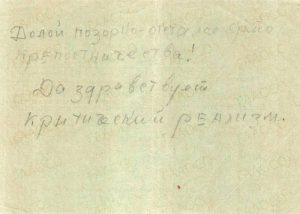 Долой позорно-отсталое
крепостничества!
Да здравствует
критический реализм.